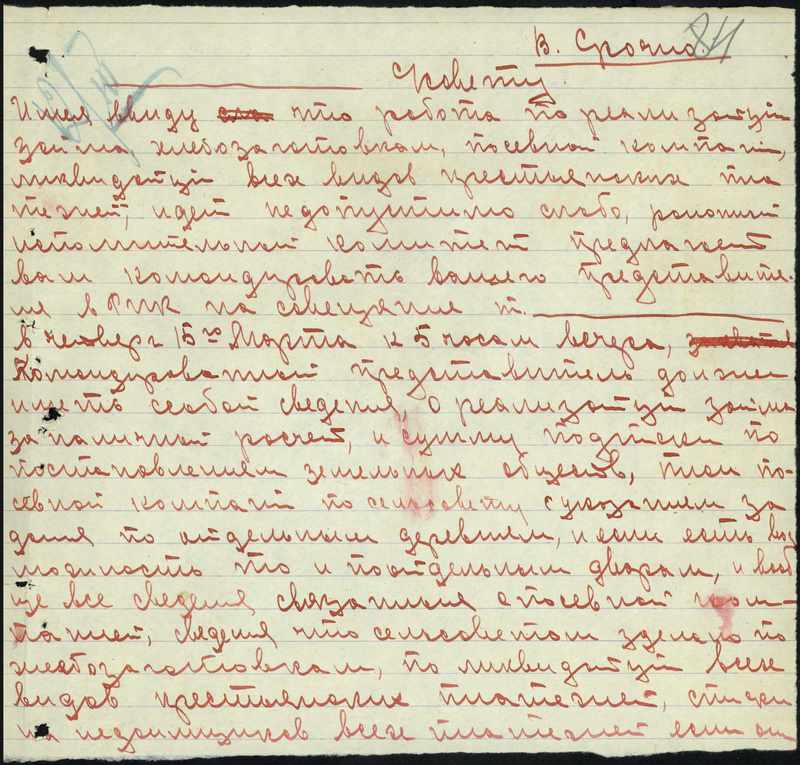 В. Срочно. 84
Совету
Имея ввиду что работа по реализации
займа хлебозаготовкам, посевной компании,
ликвидации всех видов крестьянских пла
тежей, идет недопустимо слабо, районный
исполнительной комитет предлагает
вам командировать вашего представите-
ля в РИК на совещание т.
в четверг 15го Марта к 5 часам вечера,
Командированной представитель должен
иметь с собой сведения, о реализации займа
за наличной росчет, и сумму подписки по
постановлением земельных обществ, план по-
севной компании по сельсовету с указанием за
дания по отдельным деревням, и если есть воз
можность то и по отдельным дворам, и вооб
ще все сведения связанныя с посевной ком-
панией, сведения что сельсоветом зделано по
хлебозаготовкам, по ликвидации всех
видов крестьянских платежей, списки
на недоимщиков всех платежей если он